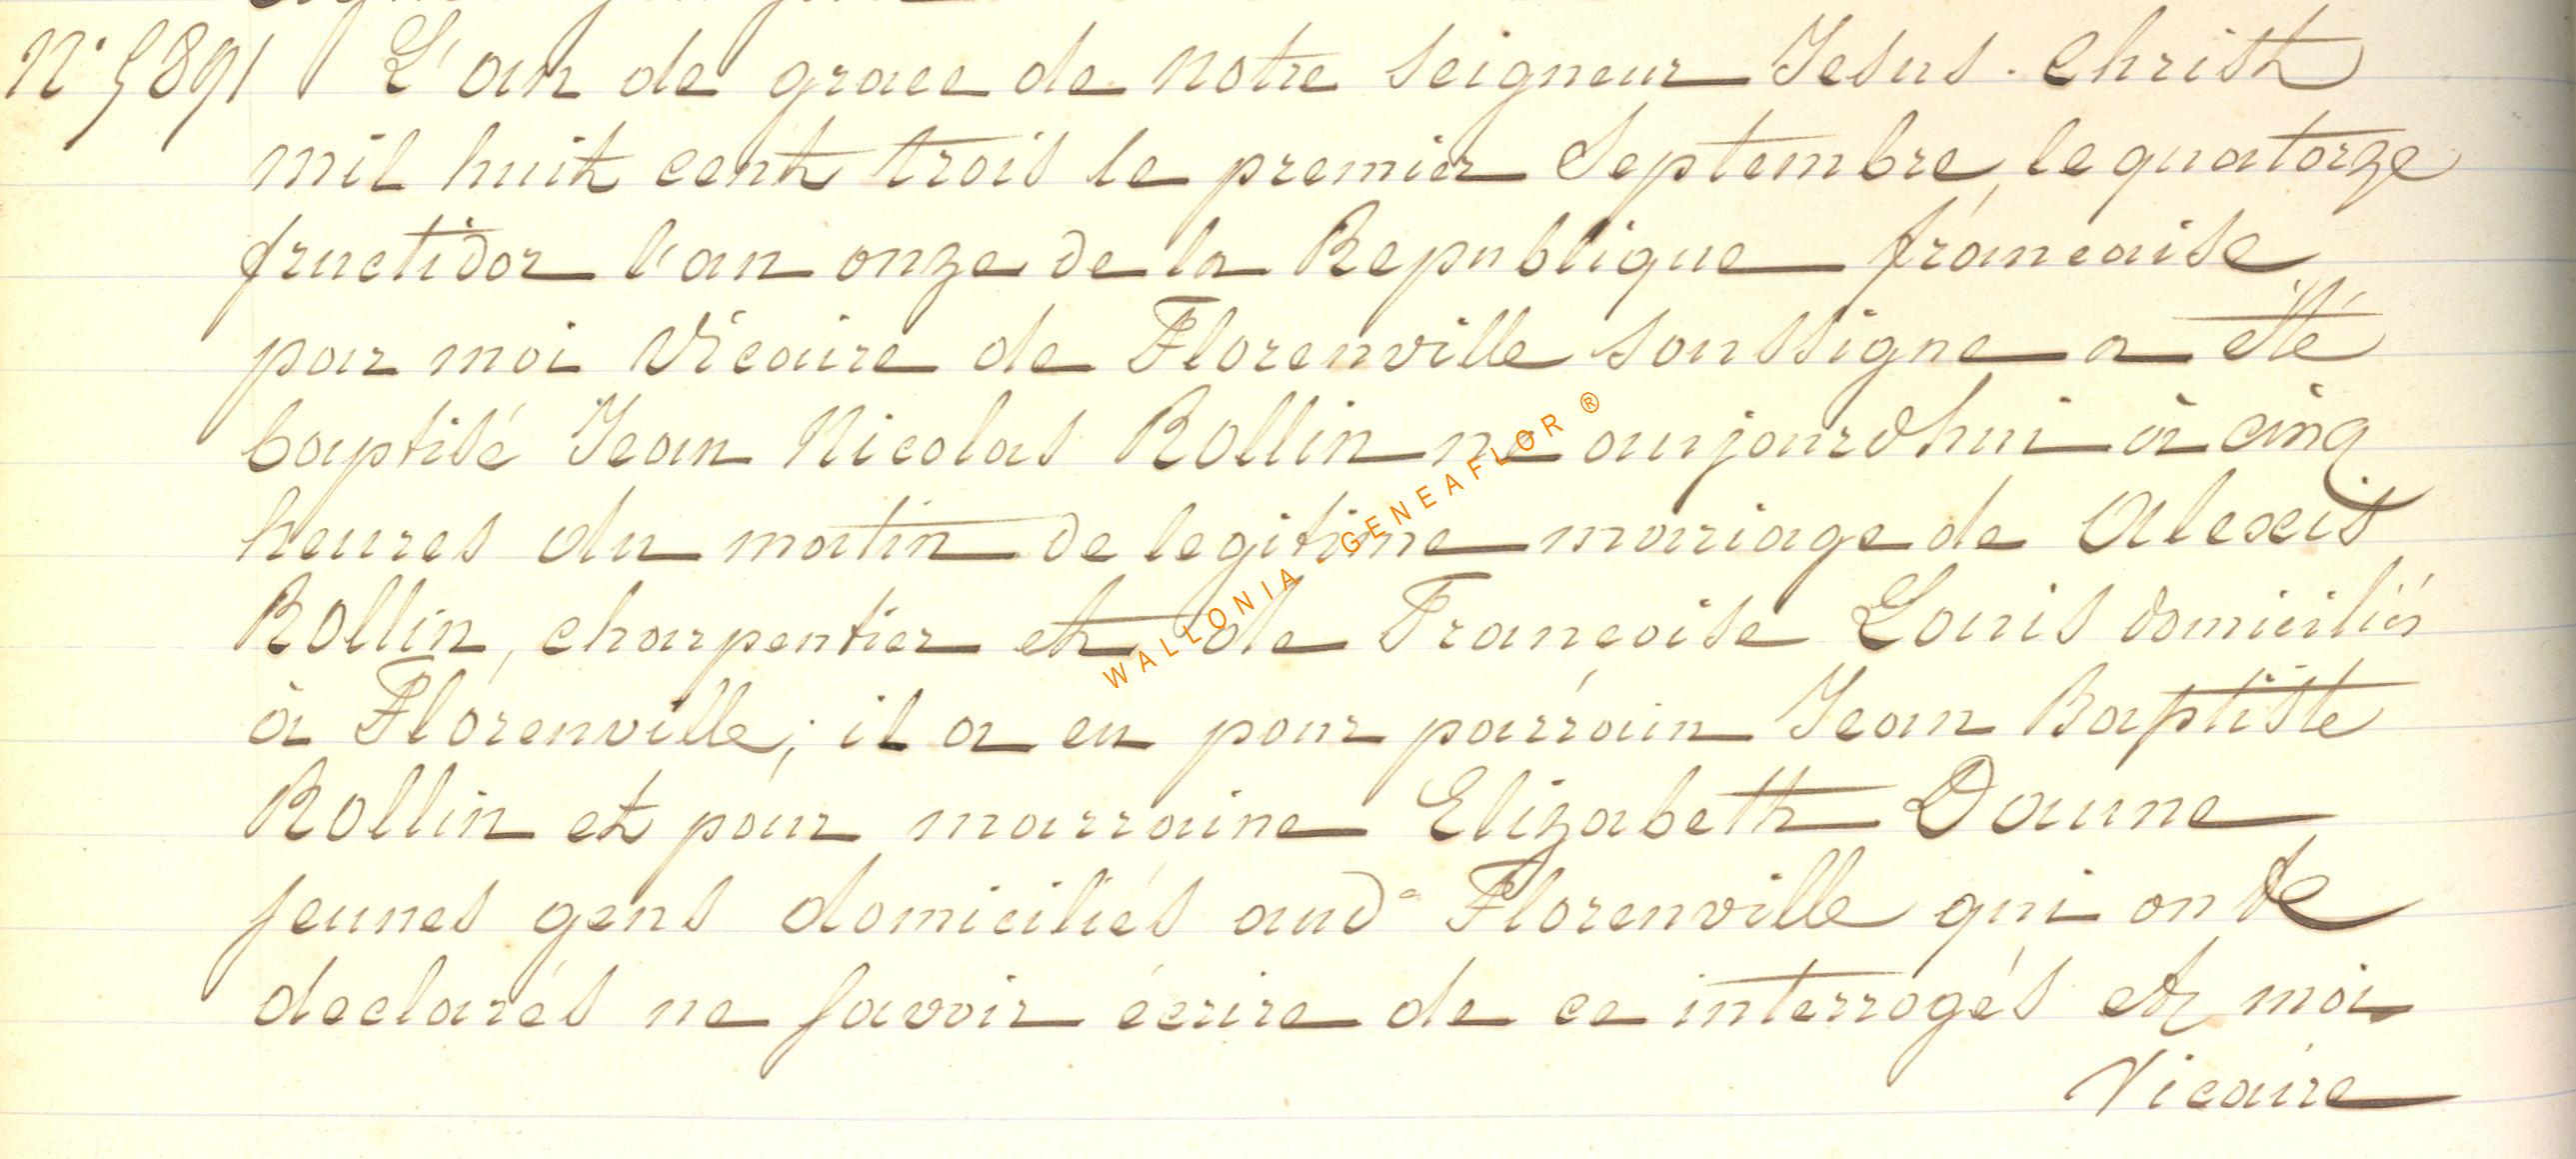 N° 5891 L'an de grace de Notre Seigneur Jesus-Christ
mil huit cent trois le premier Septembre, le quatorze
fructidor l'an onze de la Republique francaise
par moi Vicaire de Florenville soussigne a été
baptisé Jean Nicolas Rollin ne aujourdhui à cinq
heures du matin de legitime mariage de Alexis
Rollin, charpentier et de Francoise Louis domiciliés
à Florenville; il a eu pour parrain Jean Baptiste
Rollin et pour marraine Elizabeth Daune
jeunes gens domiciliés aud. Florenville qui ont
declarés ne savoir écrire de ce interrogés et moi
Vicaire
WALLONIA - GENEAFLOR ®